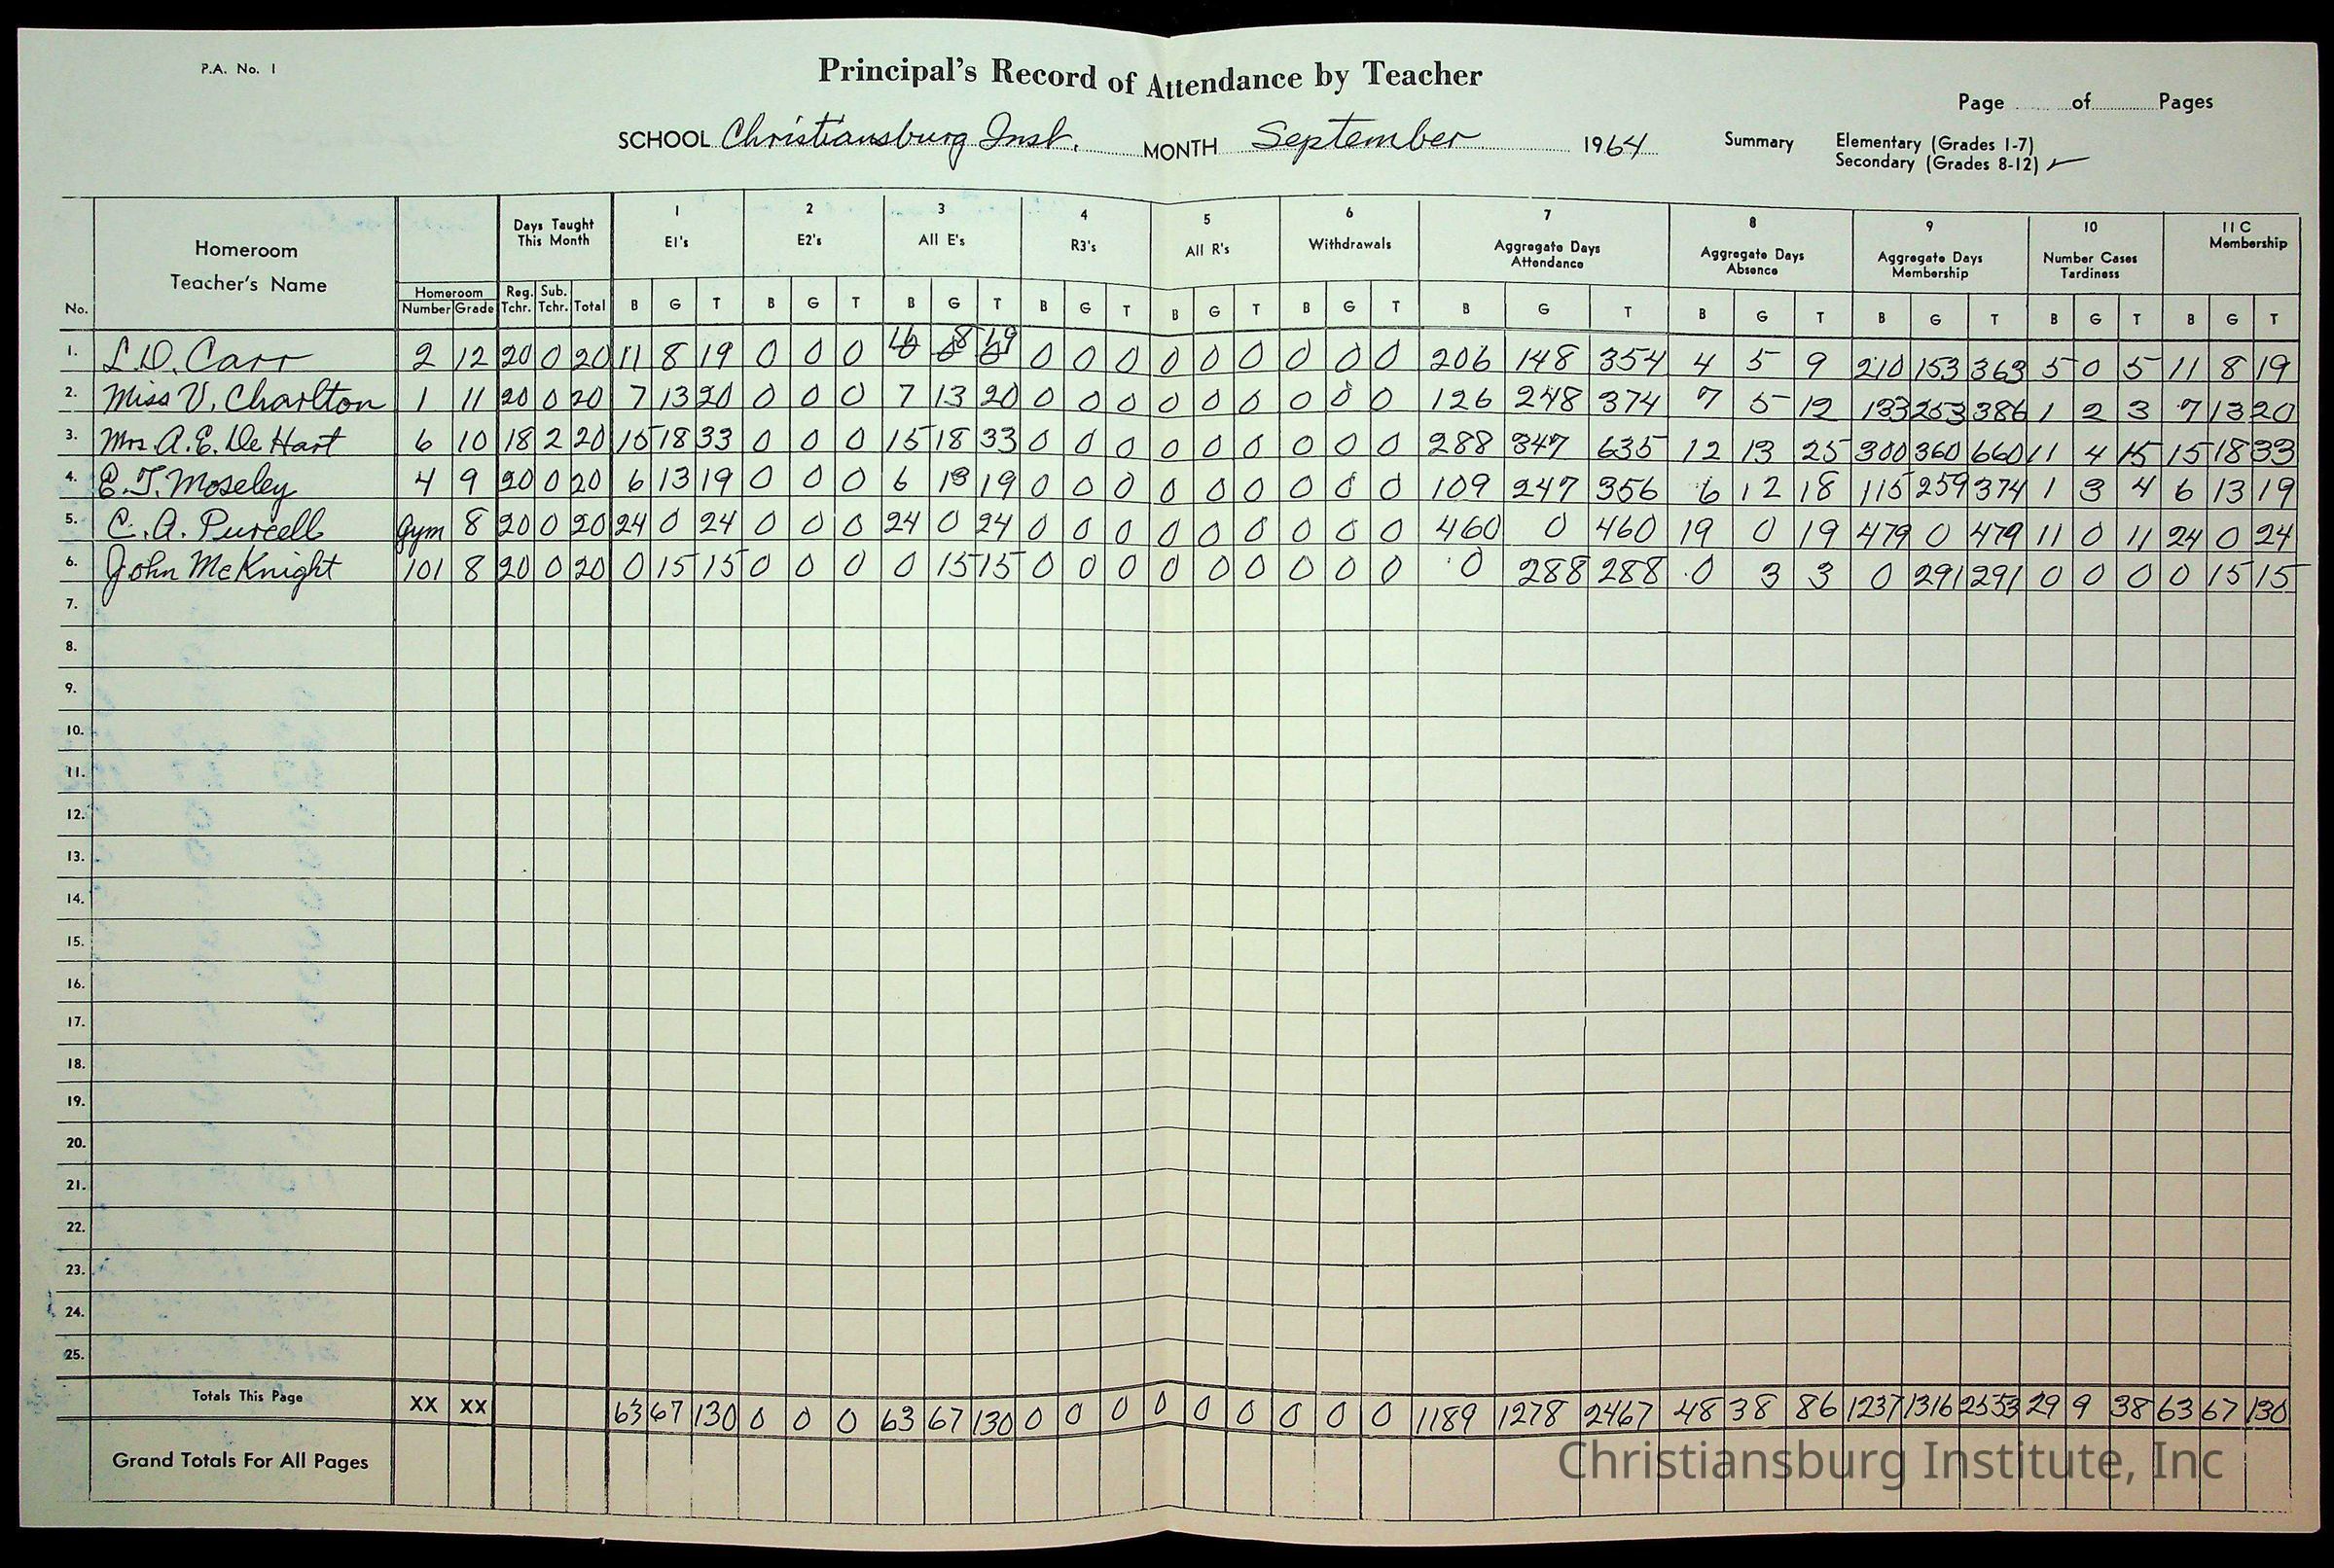 P.A. No. 1
Principal's Record of Attendance by Teacher
Page ...... of ............ Pages
SCHOOL Christiansburg Inst. MONTH September 1964
Summary Elementary (Grades 1-7)
Secondary (Grades 8-12) ✓
No. Homeroom Teacher's Name Homeroom Number Grade Days Taught This Month Reg. Tchr. Sub. Tchr. Total 1 E1's B G T 2 E2's B G T 3 All E's B G T 4 R3's B G T 5 All R's B G T 6 Withdrawals B G T 7 Aggregate Days Attendance B G T 8 Aggregate Days Absence B G T 9 Aggregate Days Membership B G T 10 Number Cases Tardiness B G T 11C Membership B G T
1. L.D. Carr 2 12 20 0 20 11 8 19 0 0 0 8 19 0 0 0 0 0 0 0 0 0 206 148 354 4 5 9 210 153 363 5 0 5 11 8 19
2. Miss V. Charlton 1 11 20 0 20 7 13 20 0 0 0 7 13 20 0 0 0 0 0 0 0 0 0 126 248 374 7 5 12 133 253 386 1 2 3 7 13 20
3. Mrs. A.E. De Hart 6 10 18 2 20 15 18 33 0 0 0 15 18 33 0 0 0 0 0 0 0 0 0 288 347 635 12 13 25 300 360 660 11 4 15 15 18 33
4. E.T. Moseley 4 9 20 0 20 6 13 19 0 0 0 6 13 19 0 0 0 0 0 0 0 0 0 109 247 356 6 12 18 115 259 374 1 3 4 6 13 19
5. C.A. Purcell Gym 8 20 0 20 24 0 24 0 0 0 24 0 24 0 0 0 0 0 0 0 0 0 460 0 460 19 0 19 479 0 479 11 0 11 24 0 24
6. John McKnight 101 8 20 0 20 0 15 15 0 0 0 0 15 15 0 0 0 0 0 0 0 0 0 0 288 288 0 3 3 0 291 291 0 0 0 0 15 15
7.
8.
9.
10.
11.
12.
13.
14.
15.
16.
17.
18.
19.
20.
21.
22.
23.
24.
25.
Totals This Page XX XX 63 67 130 0 0 0 63 67 130 0 0 0 0 0 0 0 0 0 1189 1278 2467 48 38 86 1237 1316 2553 29 9 38 63 67 130
Grand Totals For All Pages
Christiansburg Institute, Inc